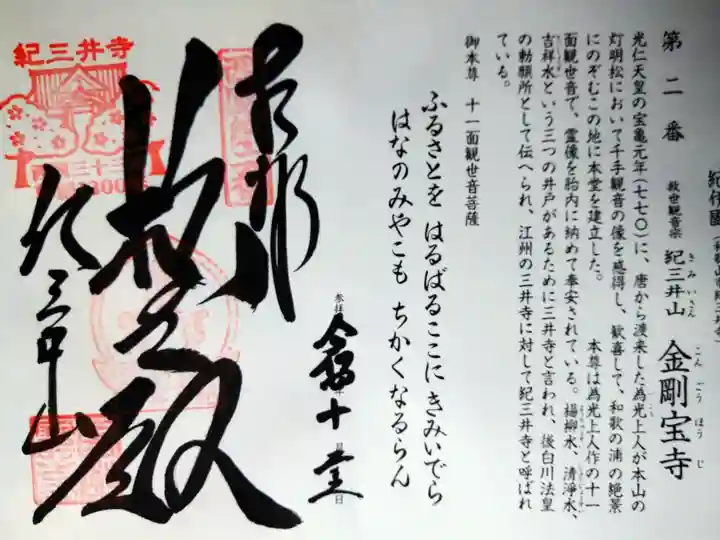 紀伊国
第二番
救世観音宗 紀三井山 金剛宝寺
きみいさん こんごうほうじ
光仁天皇の宝亀元年(七七〇)に、唐から渡来した為光上人が本山の
灯明松において千手観音の像を感得し、歓喜して、和歌の浦の絶景
にのぞむこの地に本堂を建立した。 本尊は為光上人作の十一
面観世音で、霊像を胎内に納めて奉安されている。楊柳水、清浄水、
吉祥水という三つの井戸があるために三井寺と言われ、後白川法皇
の勅願所として伝へられ、江州の三井寺に対して紀三井寺と呼ばれ
ている。
御本尊 十一面観世音菩薩
ふるさとを はるばるここにきみいでら
はなのみやこも ちかくなるらん
参拝 十 月 日
奉拝
殿
紀三井山
紀三井寺
三十三